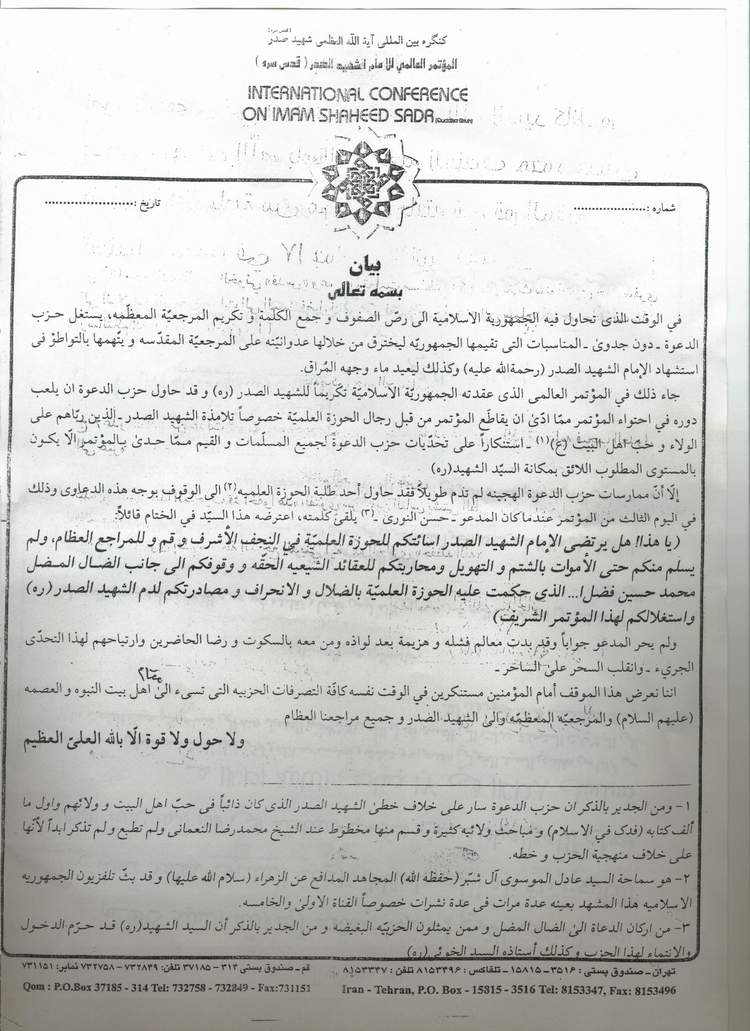 (قدس سره)
كنگره بين المللى آية الله العظمى شهيد صدر
المؤتمر العالمي للامام الشهيد الصدر ( قدس سره )
INTERNATIONAL CONFERENCE
ON IMAM SHAHEED SADR
شماره : ....................
تاريخ : ....................
بيان
بسمه تعالى
في الوقت الذى تحاول فيه الجمهورية الاسلامية الى رصّ الصفوف و جمع الكلمة و تكريم المرجعيّة المعظّمه، يستغل حزب
الدعوة ـ دون جدوى ـ المناسبات التى تقيمها الجمهوريّه ليخترق من خلالها عدوانيّته على المرجعية المقدّسه و يتّهمها بالتواطؤ فى
استشهاد الإمام الشهيد الصدر (رحمةالله عليه) وكذلك ليعيد ماء وجهه المُراق.
جاء ذلك في المؤتمر العالمى الذى عقدته الجمهوريّة الاسلاميّة تكريماً للشهيد الصدر (ره) و قد حاول حزب الدعوة ان يلعب
دوره في احتواء المؤتمر ممّا ادّىٰ ان يقاطَع المؤتمر من قبل رجال الحوزة العلميّة خصوصاً تلامذة الشهيد الصدر ـ الذين ربّاهم على
الولاء و حبّ اهل البيت (ع)(١) ـ استنكاراً على تحدّيات حزب الدعوة لجميع المسلّمات و القيم ممّا حدىٰ بالمؤتمر الّا يكون
بالمستوى المطلوب اللائق بمكانة السيّد الشهيد(ره)
إلّا أنّ ممارسات حزب الدعوة الهجينه لم تدم طويلاً فقد حاول أحد طلبة الحوزة العلميه(٢) الى الوقوف بوجه هذه الدعاوى وذلك
في اليوم الثالث من المؤتمر عندما كان المدعو ـ حسن النورى ـ(٣) يلقى كلمته، اعترضه هذا السيّد في الختام قائلاً:
(يا هذا! هل يرتضى الإمام الشهيد الصدر اسائتكم للحوزة العلميّة في النجف الأشرف و قم و للمراجع العظام، ولم
يسلم منكم حتى الأموات بالشتم و التهويل ومحاربتكم للعقائد الشيعيه الحقّه و وقوفكم الى جانب الضال المـضل
محمد حسين فضل‌ا... الذى حكمت عليه الحوزة العلميّة بالضلال و الانحراف و مصادرتكم لدم الشهيد الصدر (ره)
واستغلالكم لهذا المؤتمر الشريف)
ولم يحر المدعو جواباً وقد بدت معالم فشله و هزيمة بعد لواذه ومن معه بالسكوت و رضا الحاضرين وارتياحهم لهذا التحدّى
الجريء ـ وانقلب السحر على الساحر ـ
اننا نعرض هذا الموقف أمام المؤمنين مستنكرين في الوقت نفسه كافّة التصرفات الحزبيه التى تسيء الىٰ اهل بيت النبوه و العصمه
(عليهم السلام) والمرجعيّه المعظمّه والىٰ الشهيد الصدر و جميع مراجعنا العظام
ولا حول ولا قوة الّا بالله العلىّ العظيم
١- ومن الجدير بالذكر ان حزب الدعوة سار على خلاف خطىٰ الشهيد الصدر الذى كان ذائباً في حبّ اهل البيت و ولائهم واول ما
ألف كتابه (فدك في الاسلام) و مباحث ولائيه كثيرة و قسم منها مخطوط عند الشيخ محمدرضا النعمانى ولم تطبع و لم تذكر ابداً لأنّها
على خلاف منهجية الحزب و خطه.
٢- هو سماحة السيد عادل الموسوى آل شبّر (حفظه الله) المجاهد المدافع عن الزهراء (سلام الله عليها) و قد بثّ تلفزيون الجمهوريه
الاسلاميه هذا المشهد بعينه عدة مرات فى عدة نشرات خصوصاً القناة الاولىٰ والخامسه.
٣- من اركان الدعاة الى الضال المضل و ممن يمثلون الحزبيّه البغيضه و من الجدير بالذكر أن السيد الشهيد(ره) قـد حـرّم الدخـول
والانتماء لهذا الحزب و كذلك أستاذه السيد الخوئي(ره)
تهران - صندوق پستى : ٣٥١٦ - ١٥٨١٥ - تلفاكس : ٨١٥٣٤٩٦ تلفن : ٨١٥٣٣٤٧
قم - صندوق پستى ٣١٤ - ٣٧١٨٥ تلفن: ٧٣٢٨٤٩ - ٧٣٢٧٥٨ نمابر: ٧٣١١٥١
Qom : P.O.Box 37185 - 314 Tel: 732758 - 732849 - Fax:731151
Iran - Tehran, P.O. Box - 15815 - 3516 Tel: 8153347, Fax: 8153496